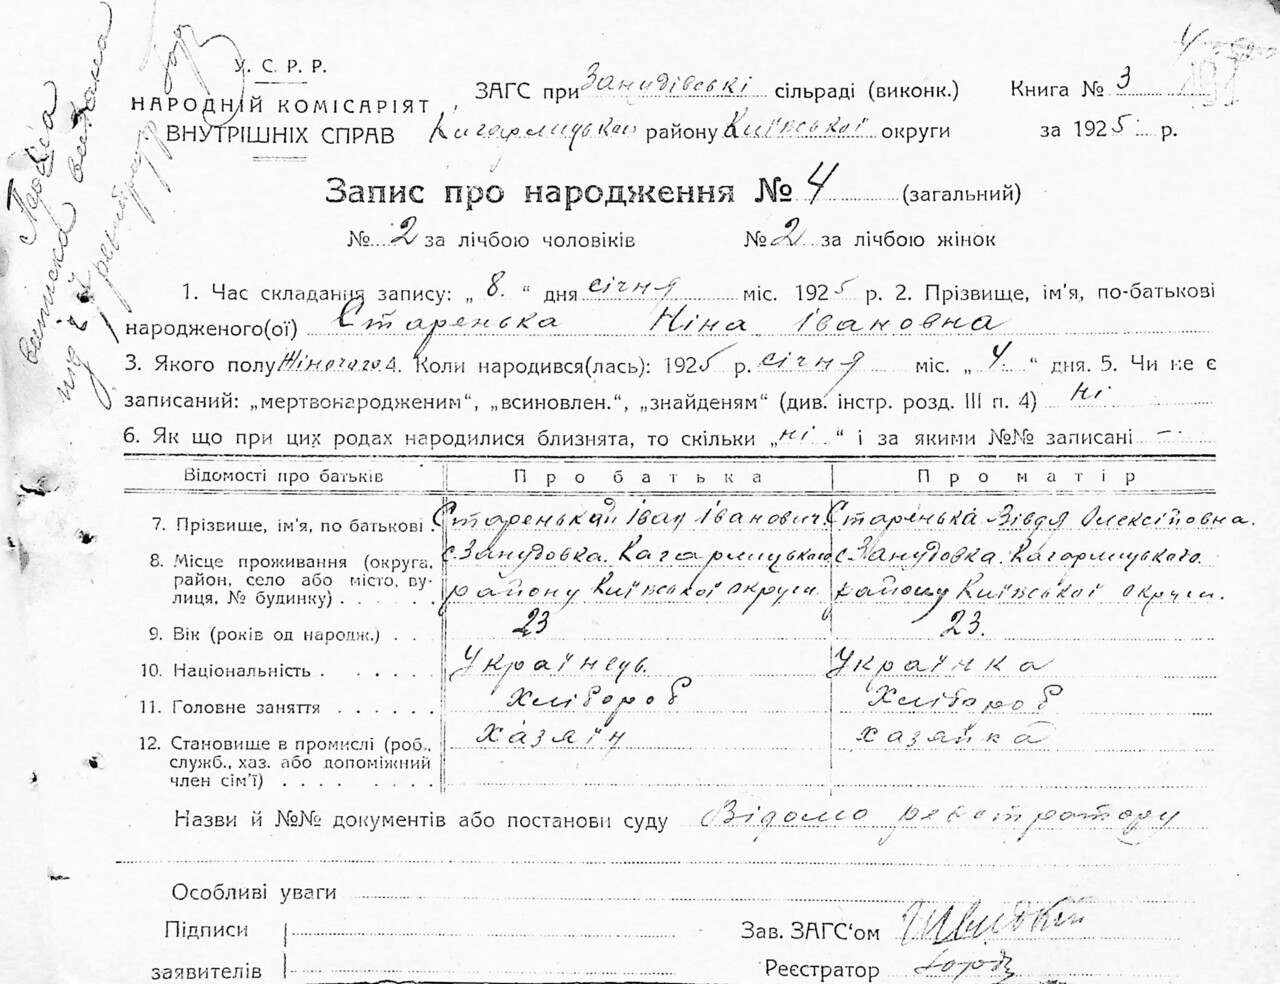 У. С. Р. Р.
НАРОДНІЙ КОМІСАРІЯТ
ВНУТРІШНІХ СПРАВ
ЗАГС при Занудівські сільраді (виконк.) Книга № 3
Кагарлицького району Київської округи за 1925 р.
Запис про народження № 4 (загальний)
№ 2 за лічбою чоловіків № 2 за лічбою жінок
1. Час складання запису: „ 8. “ дня січня міс. 1925 р. 2. Прізвище, ім'я, по-батькові
народженого(ої) Старенька Ніна Івановна
3. Якого полу Жіночого 4. Коли народився(лась): 1925 р. січня міс. „ 4. “ дня. 5. Чи не є
записаний: „мертвонародженим“, „всиновлен.“, „знайденям“ (див. інстр. розд. III п. 4) ні
6. Як що при цих родах народилися близнята, то скільки „ ні “ і за якими №№ записані —
Відомості про батьків Про батька Про матір
7. Прізвище, ім'я, по батькові . Старенький Іван Іванович. Старенька Вівдя Олексіповна.
8. Місце проживання (округа, с. Занудовка. Кагарлицького с. Занудовка. Кагарлицького
район, село або місто, ву-
лиця, № будинку) . . . . . . району Київської округи. району Київської округи.
9. Вік (років од народж.) . . 23 23.
10. Національність . . . . . . Українець. Українка
11. Головне заняття . . . . . . Хлібороб Хлібороб
12. Становище в промислі (роб., Хазяїн хазяйка
служб., хаз. або допоміжний
член сім'ї) . . . . . . . .
Назви й №№ документів або постанови суду Відомо реєстратору
Особливі уваги
Підписи
заявителів
Зав. ЗАГС‘ом
Реєстратор